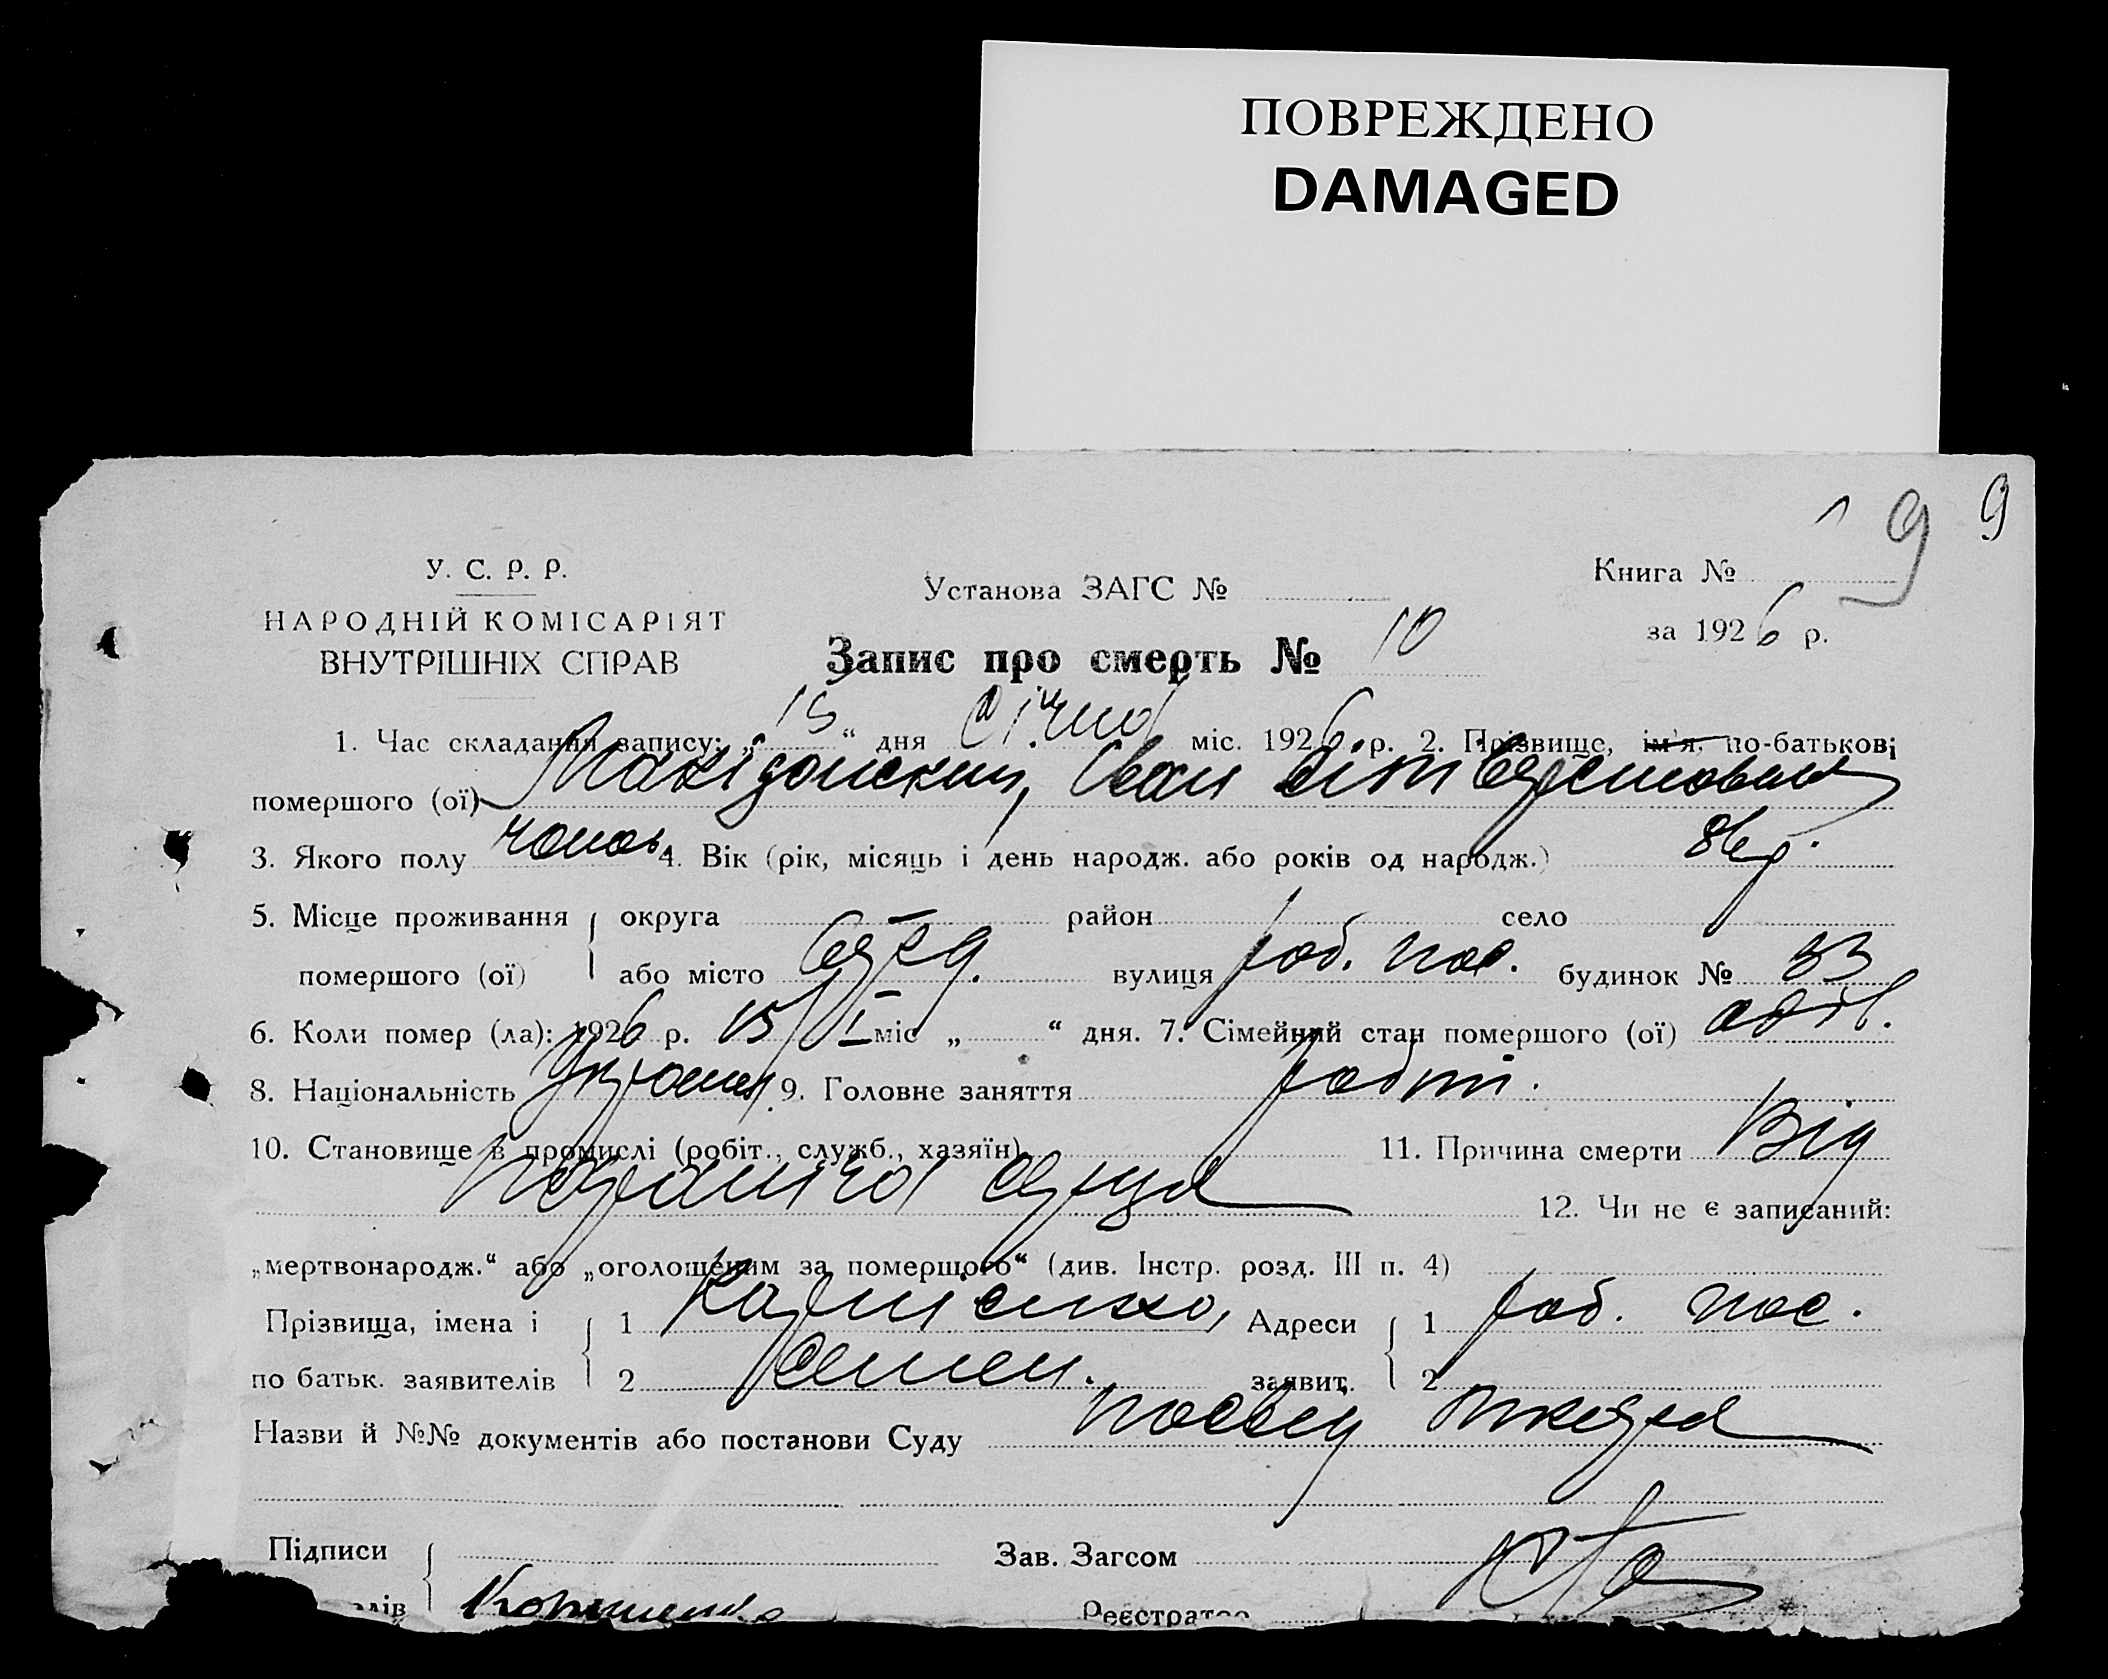 ПОВРЕЖДЕНО
DAMAGED
9 9
У. С. Р. Р.
НАРОДНІЙ КОМІСАРІЯТ
ВНУТРІШНІХ СПРАВ
Установа ЗАГС №
Книга №
за 1926 р.
Запис про смерть № 10
1. Час складання запису: „15“ дня Січня міс. 1926 р. 2. Прізвище, ім'я, по-батькові
помершого (ої) Іван
3. Якого полу чолов. 4. Вік (рік, місяць і день народж. або років од народж.)
5. Місце проживання округа район село
помершого (ої) або місто вулиця роб. пос. будинок № 33
6. Коли помер (ла): 1926 р. 15/I міс „ “ дня. 7. Сімейний стан помершого (ої)
8. Національність 9. Головне заняття
10. Становище в промислі (робіт., служб., хазяїн) 11. Причина смерти Від
12. Чи не є записаний:
„мертвонародж.“ або „оголошеним за померщого“ (див. Інстр. розд. III п. 4)
Прізвища, імена і 1 Корнієнко, Адреси 1 роб. пос.
по батьк. заявителів 2 Семен. заявит. 2
Назви й №№ документів або постанови Суду
Підписи
Зав. Загсом